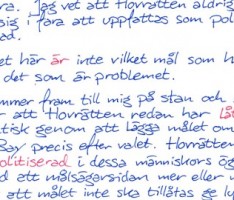 ra. Jag vet att Hovrätten aldrig
sig i fara att uppfattas som pol
rad.
et här är inte vilket mål som h
det som är problemet.
mmer fram till mig på stan och
r att Hovrätten redan har lå
tisk genom att lägga målet om
Bay precis efter valet. Hovrätten
olitiserad i dessa människors ög
d att målsägarsidan mer eller
att målet inte ska tillåtas ge